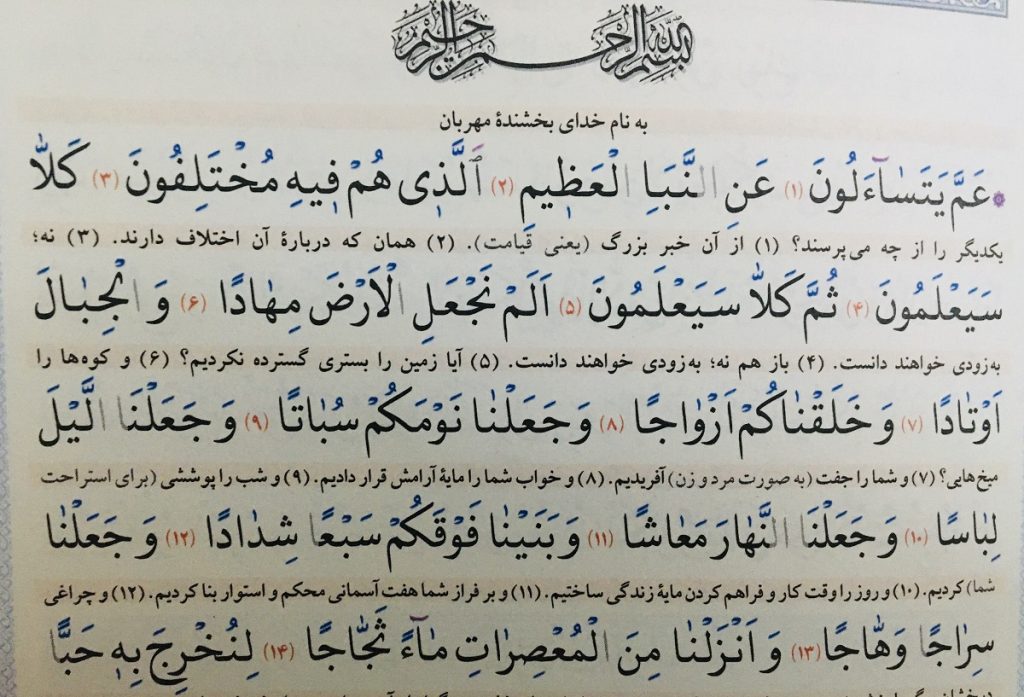 بسم الله الرحمن الرحیم
به نام خدای بخشندهٔ مهربان
عَمَّ يَتَسٰاۤءَلُونَ (۱) عَنِ النَّبَاِ الْعَظٖيمِ (۲) اَلَّذٖى هُمْ فٖيهِ مُخْتَلِفُونَ (۳) كَلّٰا
یکدیگر را از چه می‌پرسند؟ (۱) از آن خبر بزرگ (یعنی قیامت). (۲) همان که دربارهٔ آن اختلاف دارند. (۳) نه؛
سَيَعْلَمُونَ (۴) ثُمَّ كَلّٰا سَيَعْلَمُونَ (۵) اَلَمْ نَجْعَلِ الْاَرْضَ مِهٰادًا (۶) وَ الْجِبٰالَ
به‌زودی خواهند دانست. (۴) باز هم نه؛ به‌زودی خواهند دانست. (۵) آیا زمین را بستری گسترده نکردیم؟ (۶) و کوه‌ها را
اَوْتٰادًا (۷) وَ خَلَقْنٰاكُمْ اَزْوٰاجًا (۸) وَ جَعَلْنٰا نَوْمَكُمْ سُبٰاتًا (۹) وَ جَعَلْنَا الَّيْلَ
میخ‌هایی؟ (۷) و شما را جفت (به صورت مرد و زن) آفریدیم. (۸) و خواب شما را مایهٔ آرامش قرار دادیم. (۹) و شب را پوششی (برای استراحت
لِبٰاسًا (۱۰) وَ جَعَلْنَا النَّهٰارَ مَعٰاشًا (۱۱) وَ بَنَيْنٰا فَوْقَكُمْ سَبْعًا شِدٰادًا (۱۲) وَ جَعَلْنٰا
شما) کردیم. (۱۰) و روز را وقت کار و فراهم کردن مایهٔ زندگی ساختیم. (۱۱) و بر فراز شما هفت آسمانی محکم و استوار بنا کردیم. (۱۲) و چراغی
سِرٰاجًا وَهّٰاجًا (۱۳) وَ اَنْزَلْنٰا مِنَ الْمُعْصِرٰاتِ مٰاۤءً ثَجّٰاجًا (۱۴) لِنُخْرِجَ بِهٖ حَبًّا